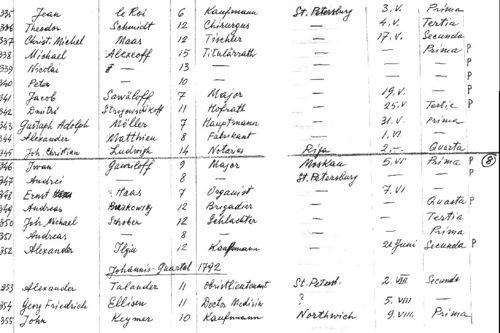 335 Jean le Roi 6 Kaufmann St. Petersburg 3. V. Prima
336 Theodor Schmidt 12 Chirurgus — 4. V. Tertia
337 Christ. Michel Maas 12 Tischler — 17. V. Secunda
338 Michael Alexeoff 15 Titulärrath — — Prima P
339 Nicolai — 13 — — — — P
340 Peter — 10 — — — — P
341 Jacob Sawäloff 7 Major — 19. V. — P
342 Dmitri 11 Hofrath — 25. V Tertia P
343 Gustaph Adolph Möller 7 Hauptmann — 31. V. Prima
344 Alexander Matthieu 8 Fabrikant — 1. VI —
345 Joh. Christian Ludwig 14 Notarius Riga 2. — Quarta
346 Iwan Gawriloff 9 Major Moskau 5. VI Prima P 8
347 Andrei — 8 — St. Petersburg — P
348 Ernst Haas 7 Organist — 7. VI
349 Andreas 12 Brigadier — Quarta P
350 Joh. Michael Schober 12 Schlachter — — Tertia
351 Andreas 8 — — Prima
352 Alexander Iljin 12 Kaufmann — 26 Juni Secunda P
Johannis-Quartal 1792
353 Alexander Talander 11 Obristlieutenant St. Petersb. 2. VII Secunda
354 Georg Friedrich Ellisen 11 Doctor Medicin ? 5. VIII —
355 John Keymer 10 Kaufmann Northwich 9. VIII. Prima